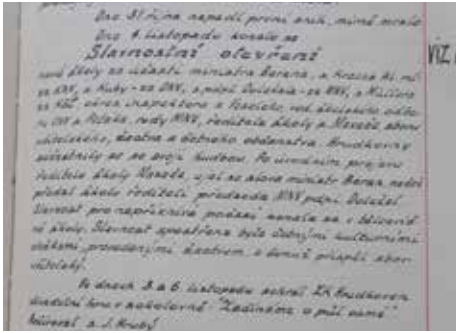 Dne 31. října napadl první sníh, mírně mrzlo
Dne 4. listopadu konalo se
Slavnostní otevření
nové školy za účasti ministra Berana, a Krause
za KNV, a Kuby - za ONV, a popl. Doležala - za MNV, a Müllera
za KSČ okres. inspektora s. ved. školského odbo-
ru ONV s. rady MNV, ředitele školy s. Mareše, sboru
učitelského, žactva a četného občanstva. Hrudkovny
zúčastnily se se svojí hudbou. Po úvodním projevu
ředitele školy Mareše, ujal se slova ministr Beran, načež
předal školu řediteli předseda MNV Doležal
Slavnost pro nepříznivé počasí konala se v tělocvič-
ně školy. Slavnost zpestřena byla četnými kulturními
vložkami, provedenými žactvem, a k přispěl sbor
učitelský.
Ve dnech 3. a 6. listopadu sehrál ZK Hrudkoven
divadelní hru v sokolovně "Začínáme o půl osmé"
a J. Hrubý
VIZ